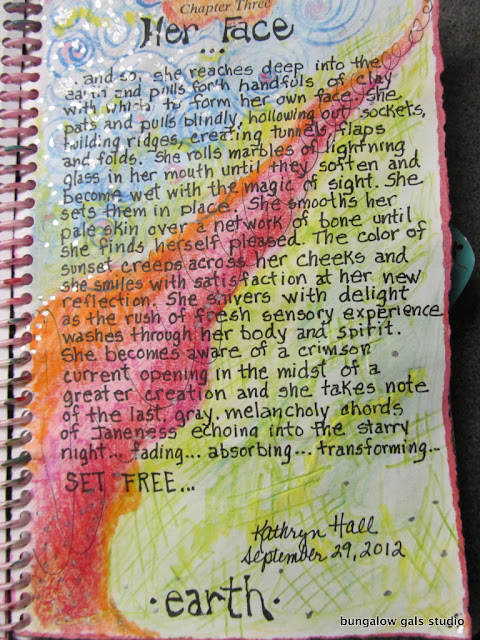 Chapter Three
Her Face
...
... and so, she reaches deep into the
earth and pulls forth handfuls of clay
with which to form her own face. She
pats and pulls blindly, hollowing out sockets,
building ridges, creating tunnels, flaps
and folds. She rolls marbles of lightning
glass in her mouth until they soften and
become wet with the magic of sight. She
sets them in place. She smooths her
pale skin over a network of bone until
she finds herself pleased. The color of
sunset creeps across her cheeks and
she smiles with satisfaction at her new
reflection. She shivers with delight
as the rush of fresh sensory experience
washes through her body and spirit.
She becomes aware of a crimson
current opening in the midst of a
greater creation and she takes note
of the last, gray, melancholy chords
of Janeness echoing into the starry
night... fading... absorbing... transforming...
SET FREE...
Kathryn Hall
September 29, 2012
· earth ·
bungalow gals studio